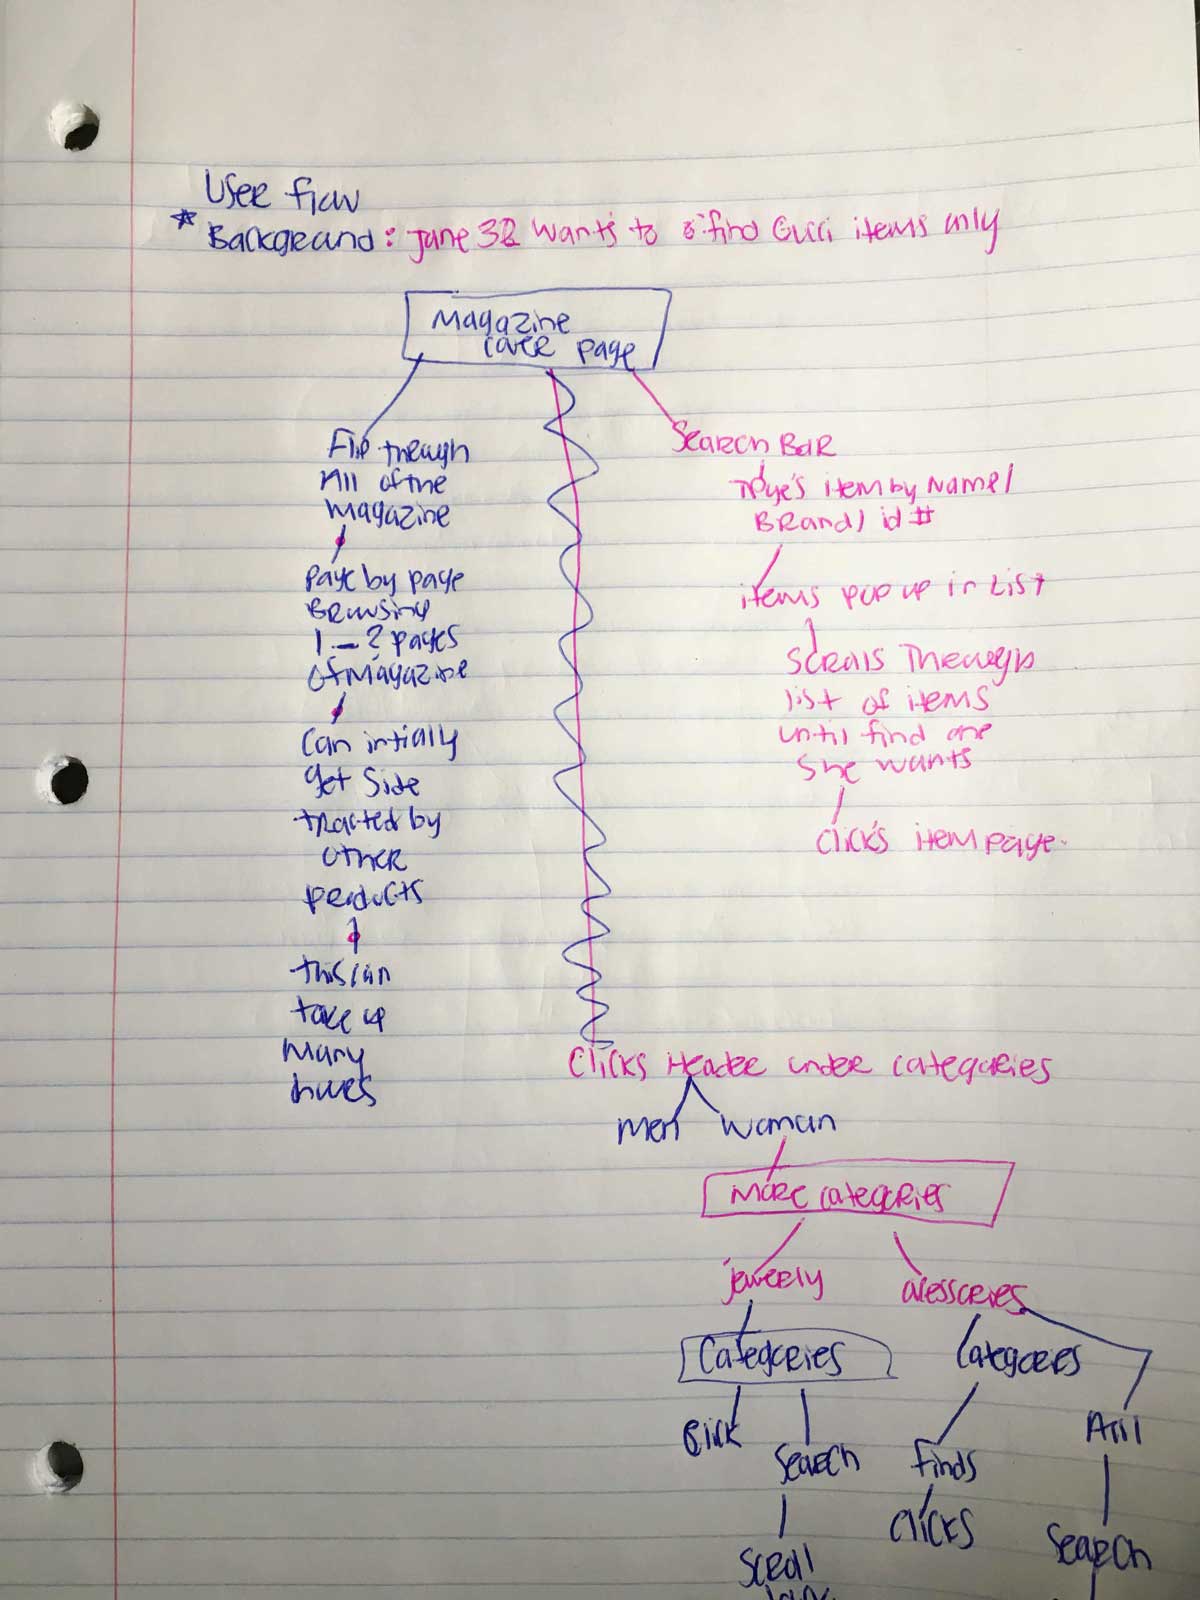 User flow
* Background: Jane 32 wants to find Gucci items only
Magazine
cover page
Flip through
All of the
Magazine
Page by page
Browsing
1 - 2 pages
of Magazine
Can intially
get side
tracted by
other
products
this can
take up
many
Search Bar
Tpye's item by Name/
Brand/ id #
items pop up in List
Scrolls Through
list of items
until find one
she wants
Click's item page.
Clicks Header under categories
men woman
More categories
jewerly acessories
Categories Categories
Search finds All
Clicks Search
Scroll